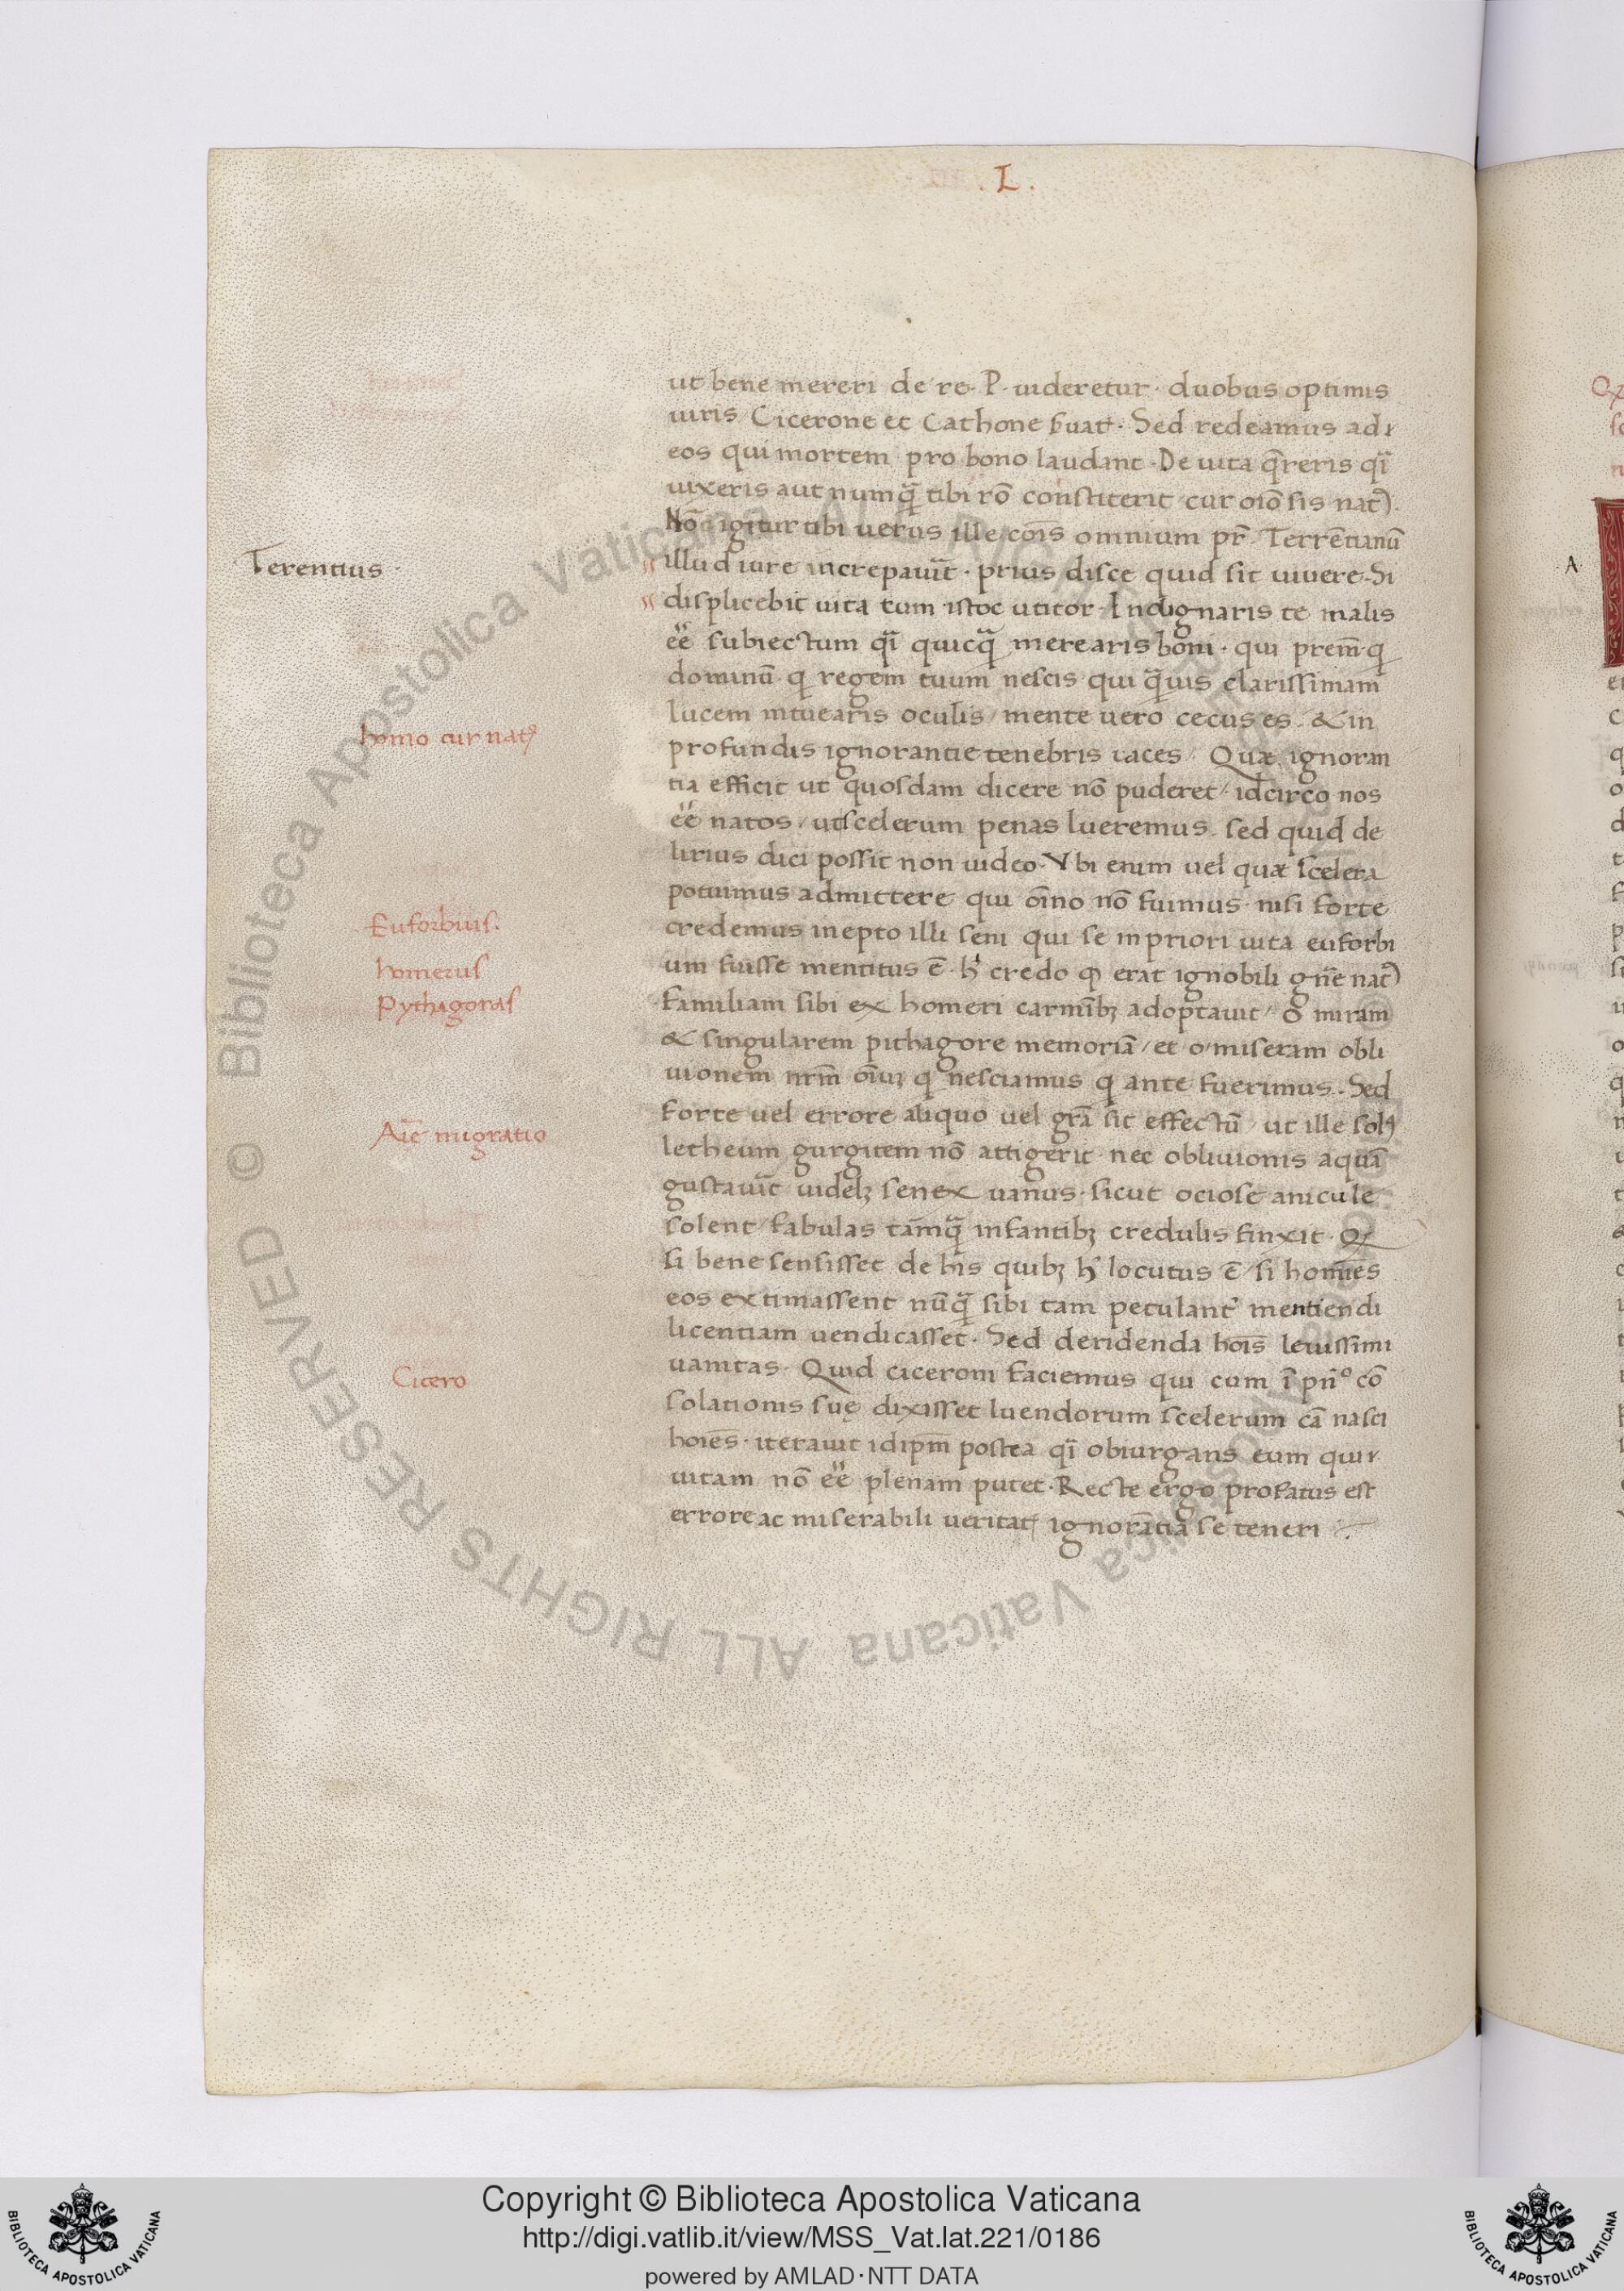 . L .
ut bene mereri de re · P · uideretur · duobus optimis
uiris Cicerone et Cathone ẜuat᷒ · Sed redeamus ad
eos qui mortem pro bono laudant · De uita q̄reris q̄i
uixeris aut numq̄ tibi rō constiterit cur oīo sis nat᷒ ·
Nō igitur tibi uerus ille cōis omnium pr̄ · Terrētianū
Terentius ·
illud iure increpauīt · prius disce quid sit uiuere · Si
displicebit uita tum istoc utitor · Indignaris te malis
eē subiectum q̄i quicq̄ merearis boni · qui prem̄ · q
dominū · q regem tuum nescis qui q̄uis clarissimam
lucem intuearis oculis / mente uero cecus es · & in
homo cur natꝰ
profundis ignorantie tenebris iaces / Quæ ignoran
tia efficit ut quosdam dicere nō puderet / idcirco nos
eē natos / ut scelerum penas lueremus · sed quid de
lirius dici possit non uideo · Vbi enim uel quæ scelera
potuimus admittere qui oīno nō fuimus · nisi forte
Euforbius ·
credemus inepto illi seni qui se in priori uita euforbi
homerus
um fuisse mentitus ē · h᷒ credo ꝙ erat ignobili gn̄e nat᷒
Pythagoras
familiam sibi ex homeri carmībꝫ adoptauit / O miram
& singularem pithagore memoriā / et o / miseram obli
uionem nr̄m oīuꝫ q nesciamus q ante fuerimus · Sed
Aīe migratio
forte uel errore aliquo uel grā sit effectū / ut ille solꝰ
letheum gurgitem nō attigerit · nec obliuionis aquā
gustauīt uidelꝫ senex uanus · sicut ociose anicule
solent / fabulas tamq̄ infantibꝫ credulis finxit · Qꝫ
si bene sensisset de his quibꝫ h᷒ locutus ē / si homīes
eos extimassent nūq̄ sibi tam petulant᷒ mentiendi
licentiam uendicasset · Sed deridenda hoīs leuissimi
Cicero
uanitas · Quid ciceroni faciemus qui cum ī pn̄º cō
solationis suę dixisset luendorum scelerum cā nasci
hoīes · iterauit idipm̄ postea q̄i obiurgans eum qui
uitam nō eē plenam putet · Recte ergo profatus est
errore ac miserabili ueritatꝭ ignorātia se teneri ·
A·
Copyright © Biblioteca Apostolica Vaticana
http://digi.vatlib.it/view/MSS_Vat.lat.221/0186
powered by AMLAD·NTT DATA
BIBLIOTECA APOSTOLICA VATICANA
BIBLIOTECA APOSTOLICA VATICANA
© Biblioteca Apostolica Vaticana ALL RIGHTS RESERVED